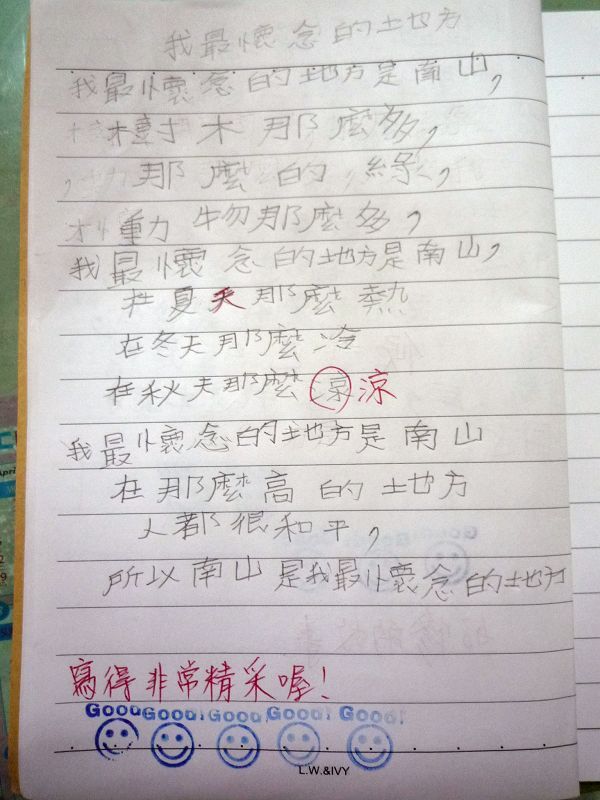 我最懷念的土地方
我最懷念的地方是南山，
樹木那麼多，
那麼的綠，
動物那麼多，
我最懷念的地方是南山，
在夏天那麼熱
在冬天那麼冷
在秋天那麼涼 涼
我最懷念的地方是南山
在那麼高的土地方
人都很和平，
所以南山是我最懷念的地方
寫得非常精采喔！
Good! Good! Good! Good! Good!
L.W.&IVY
April